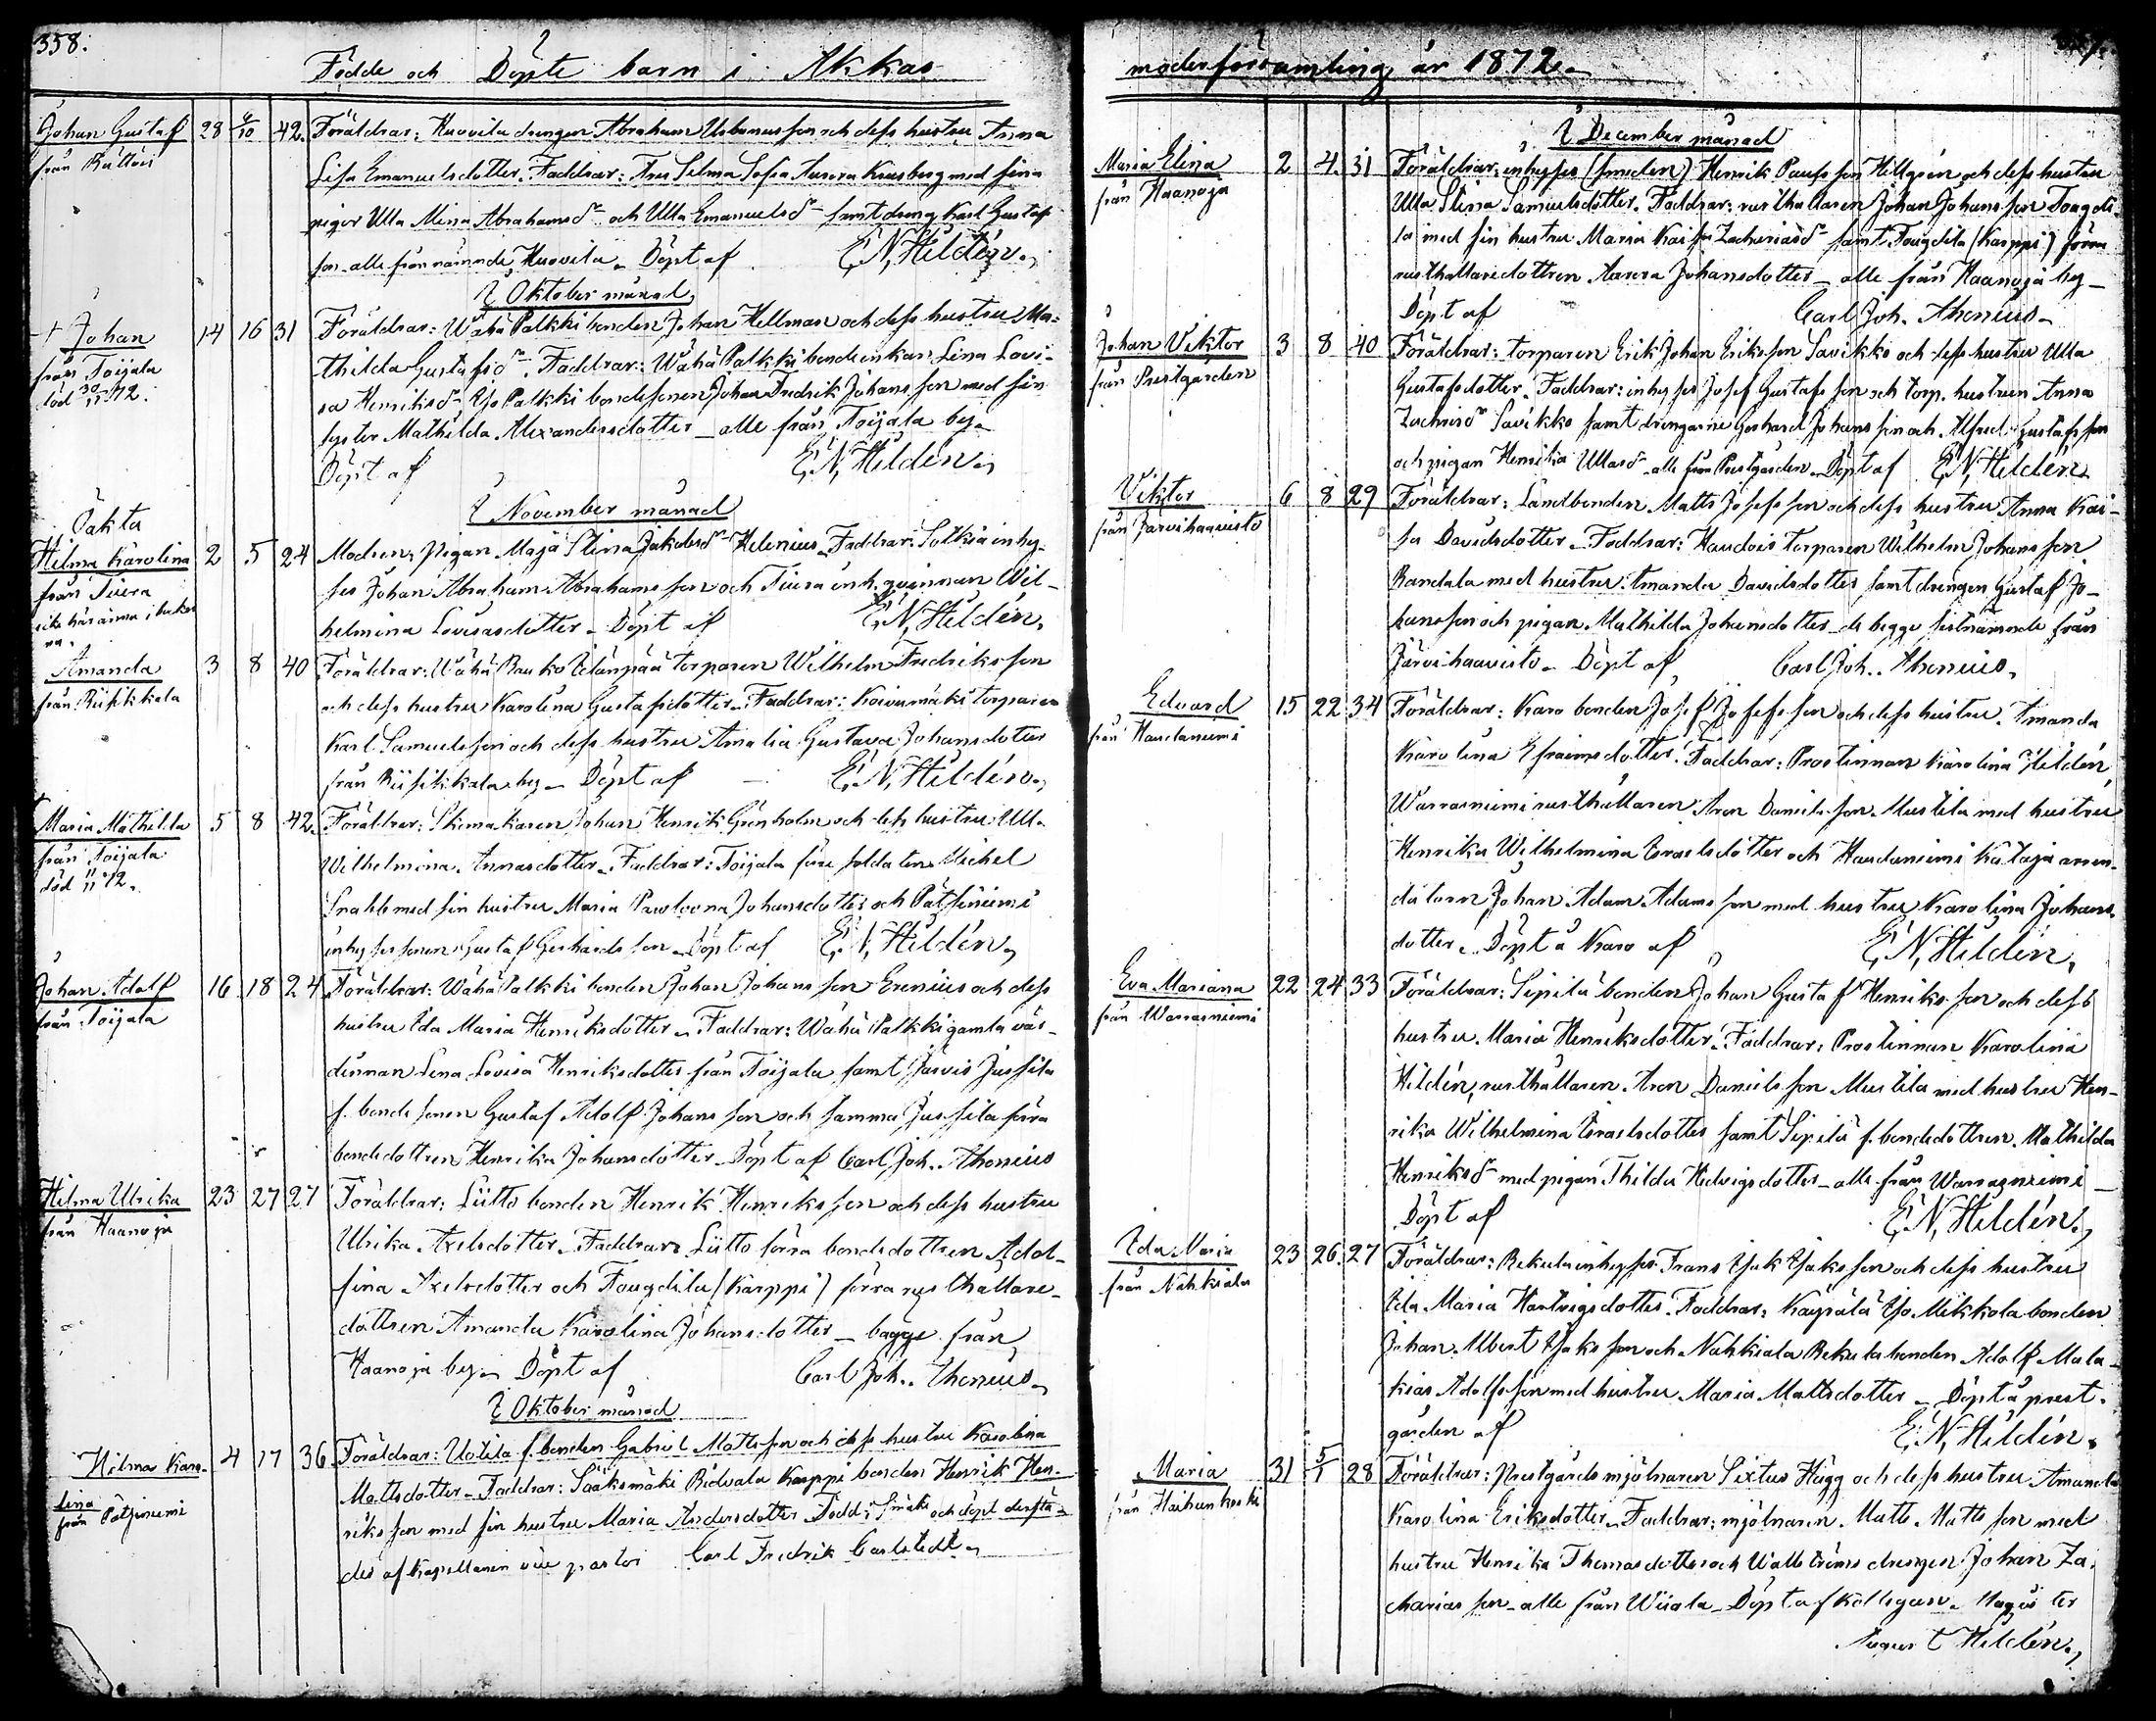 358.
Födde och Döpte barn i Akkas
Johan Gustaf 28 6/10 42. Föräldrar: Huovila drengen Abraham Urbanusson och dess hustru Anna
från
Lisa Emanuelsdotter. Faddrar: Selma Sofia Aurora med sina
pigor Ulla Mina Abrahamsdr och Ulla Emanuelsdr samt dreng Karl Gustafs
son alle från nämnde Huovila. Döpt af E, N, Hildén,
I Oktober månad
+ Johan 14 16 31 Föräldrar: Wähä Palkki bonden Johan Hellman och dess hustru Ma-
från Toijala
död 30/11 72.
thilda Gustafsdr. Faddrar: Wähä Palkki bondeenkan Lina Lovi-
sa Henriksdr Yjo Palkki bondesonen Johan Fredrik Johansson med sin
syster Mathilda Alexandersdotter _ alle från Toijala by.
Döpt af E, N, Hildén,
I November månad
Oäkta
Helma Karolina 2 5 24 Modren, pigan Maja Stina Jakobsdr Helenius. Faddrar: Sotkia inhy-
från Tiura
ses Johan Abraham Abrahamsson och Tiura inh. qvinnan Wil-
helmina Lovisasdotter. Döpt af E, N, Hildén,
Amanda 3 8 40 Föräldrar: Wähä Rauko torparen Wilhelm Fredriksson
från Riisikkala
och dess hustru Karolina Gustafsdotter. Faddrar: Koivumäki torparen
Karl Samuelsson och dess hustru Amalia Gustava Johansdotter
från Riisikkala by. Döpt af E, N, Hildén,
Maria Mathilda 5 8 42. Föräldrar: Skomakaren Johan Henrik Grönholm och dess hustru Ulla
från Toijala
död 11/11 72.
Wilhelmina Annasdotter. Faddrar: Toijala före soldaten Michel
Snabb med sin hustru Maria Pawlovna Johansdotter och Pätsiniemi
inhysessonen Gustaf Gerhardsson. Döpt af E, N, Hildén,
Johan Adolf 16 18 24 Föräldrar: Wähä Palkki bonden Johan Johansson Erenius och dess
från Toijala
hustru Ida Maria Henriksdotter. Faddrar: Wähä Palkki gamla vär-
dinnan Lena Lovisa Henriksdotter från Toijala samt Jarvis Jussila
f. bondesonen Gustaf Adolf Johansson och samma Jussila förra
bondedottren Henrika Johansdotter. Döpt af Carl Joh. Ahonius
Helma Ulrika 23 27 27 Föräldrar: Liitto bonden Henrik Henriksson och dess hustru
från Haanoja
Ulrika Axelsdotter. Faddrar: Liitto förra bondedottren Adol-
fina Axelsdotter och Fougdila (Karppi) förra rusthållare-
dottren Amanda Karolina Johansdotter _ bägge från
Haanoja by. Döpt af Carl Joh. Ahonius.
I Oktober månad
Hilma Karo- 4 17 36. Föräldrar: Uotila f. bonden Gabriel Mattsson och dess hustru Karolina
lina
från Pätsiniemi
Mattsdotter. Faddrar: Sääksmäki Ridvala Karppi bonden Henrik Hen-
riksson med sin hustru Maria Andersdotter. Född i och döpt derstä-
des af Kapellanen vice pastor Carl Fredrik Carlstedt.
moderförsamling år 1872.
I December månad
Maria Elina 2 4. 31 Föräldrar: inhyses (smeden) Henrik Hellgrén och dess hustru
från Haanoja
Ulla Stina Samuelsdotter. Faddrar: rusthållaren Johan Johansson Fougdi-
la med sin hustru Maria Kaisa Zachariasdr samt Fougdila (Karppi) förra
rusthållaredottren Aurora Johansdotter _ alle från Haanoja by _
Döpt af Carl Joh. Ahonius.
Johan Viktor 3 8 40 Föräldrar: torparen Erik Johan Eriksson Savikko och dess hustru Ulla
från Prestgården
Gustafsdotter. Faddrar: inhyses Josef Gustafsson och torp. hustrun Anna
Zachrisdr Savikko samt drengarne Gerhard Johansson och Alfred Gustafsson
och pigan Henrika Ullasdr alle från Prestgården. Döpt af E, N, Hildén
Viktor 6 8 29 Föräldrar: Landbonden Matts Josefsson och dess hustru Anna Kai-
från Jarvihaavisto
sa Davidsdotter. Faddrar: Haudois torparen Wilhelm Johansson
Randala med hustru Amanda Davidsdotter samt drengen Gustaf Jo-
hansson och pigan Mathilda Johansdotter de begge sistnämnde från
Järvihaavisto. Döpt af Carl Joh. Ahonius.
Edvard 15 22 34 Föräldrar: Karo bonden Josef Josefsson och dess hustru Amanda
från Haudaniemi
Karolina Efraimsdotter. Faddrar: Prostinnan Karolina Hildén,
Warrasniemi rusthållaren Aron Danielsson Mustila med hustru
Henrika Wilhelmina Israelsdotter och Haudaniemi Kataja arren-
datorn Johan Adam Adamsson med hustru Karolina Johans-
dotter. Döpt å Karo af E, N, Hildén,
Eva Mariana 22 24 33 Föräldrar: Sipilä bonden Johan Gustaf Henriksson och dess
från Warrasniemi
hustru Maria Henriksdotter. Faddrar: Prostinnan Karolina
Hildén, rusthållaren Aron Danielsson Mustila med hustru Hen-
rika Wilhelmina Israelsdotter samt Sipilä f. bondedottren Mathilda
Henriksdr med pigan Thilda Hedvigsdotter _ alle från Warrasniemi _
Döpt af E, N, Hildén,
Ida Maria 23 26. 27 Föräldrar: Rekula inhyses Frans Isak Isaksson och dess hustru
från Nahkiala
Ida Maria Hartvigsdotter. Faddrar: Käyrälä Yjo Mikkola bonden
Johan Albert Isaksson och Nahkiala Rekula bonden Adolf Mala-
kias Adolfsson med hustru Maria Mattsdotter. Döpt å prest-
gården af E, N, Hildén,
Maria 31 5/1 28 Föräldrar: Prestgårds mjölnaren Sixtus Hägg och dess hustru Amanda
från Haihunkoski
Karolina Eriksdotter. Faddrar: mjölnaren Matts Mattsson med
hustru Henrika Thomasdotter och Wallströms drengen Johan Za-
chariasson _ alle från Wiiala. Döpt af kollegan Magister
August Hildén,